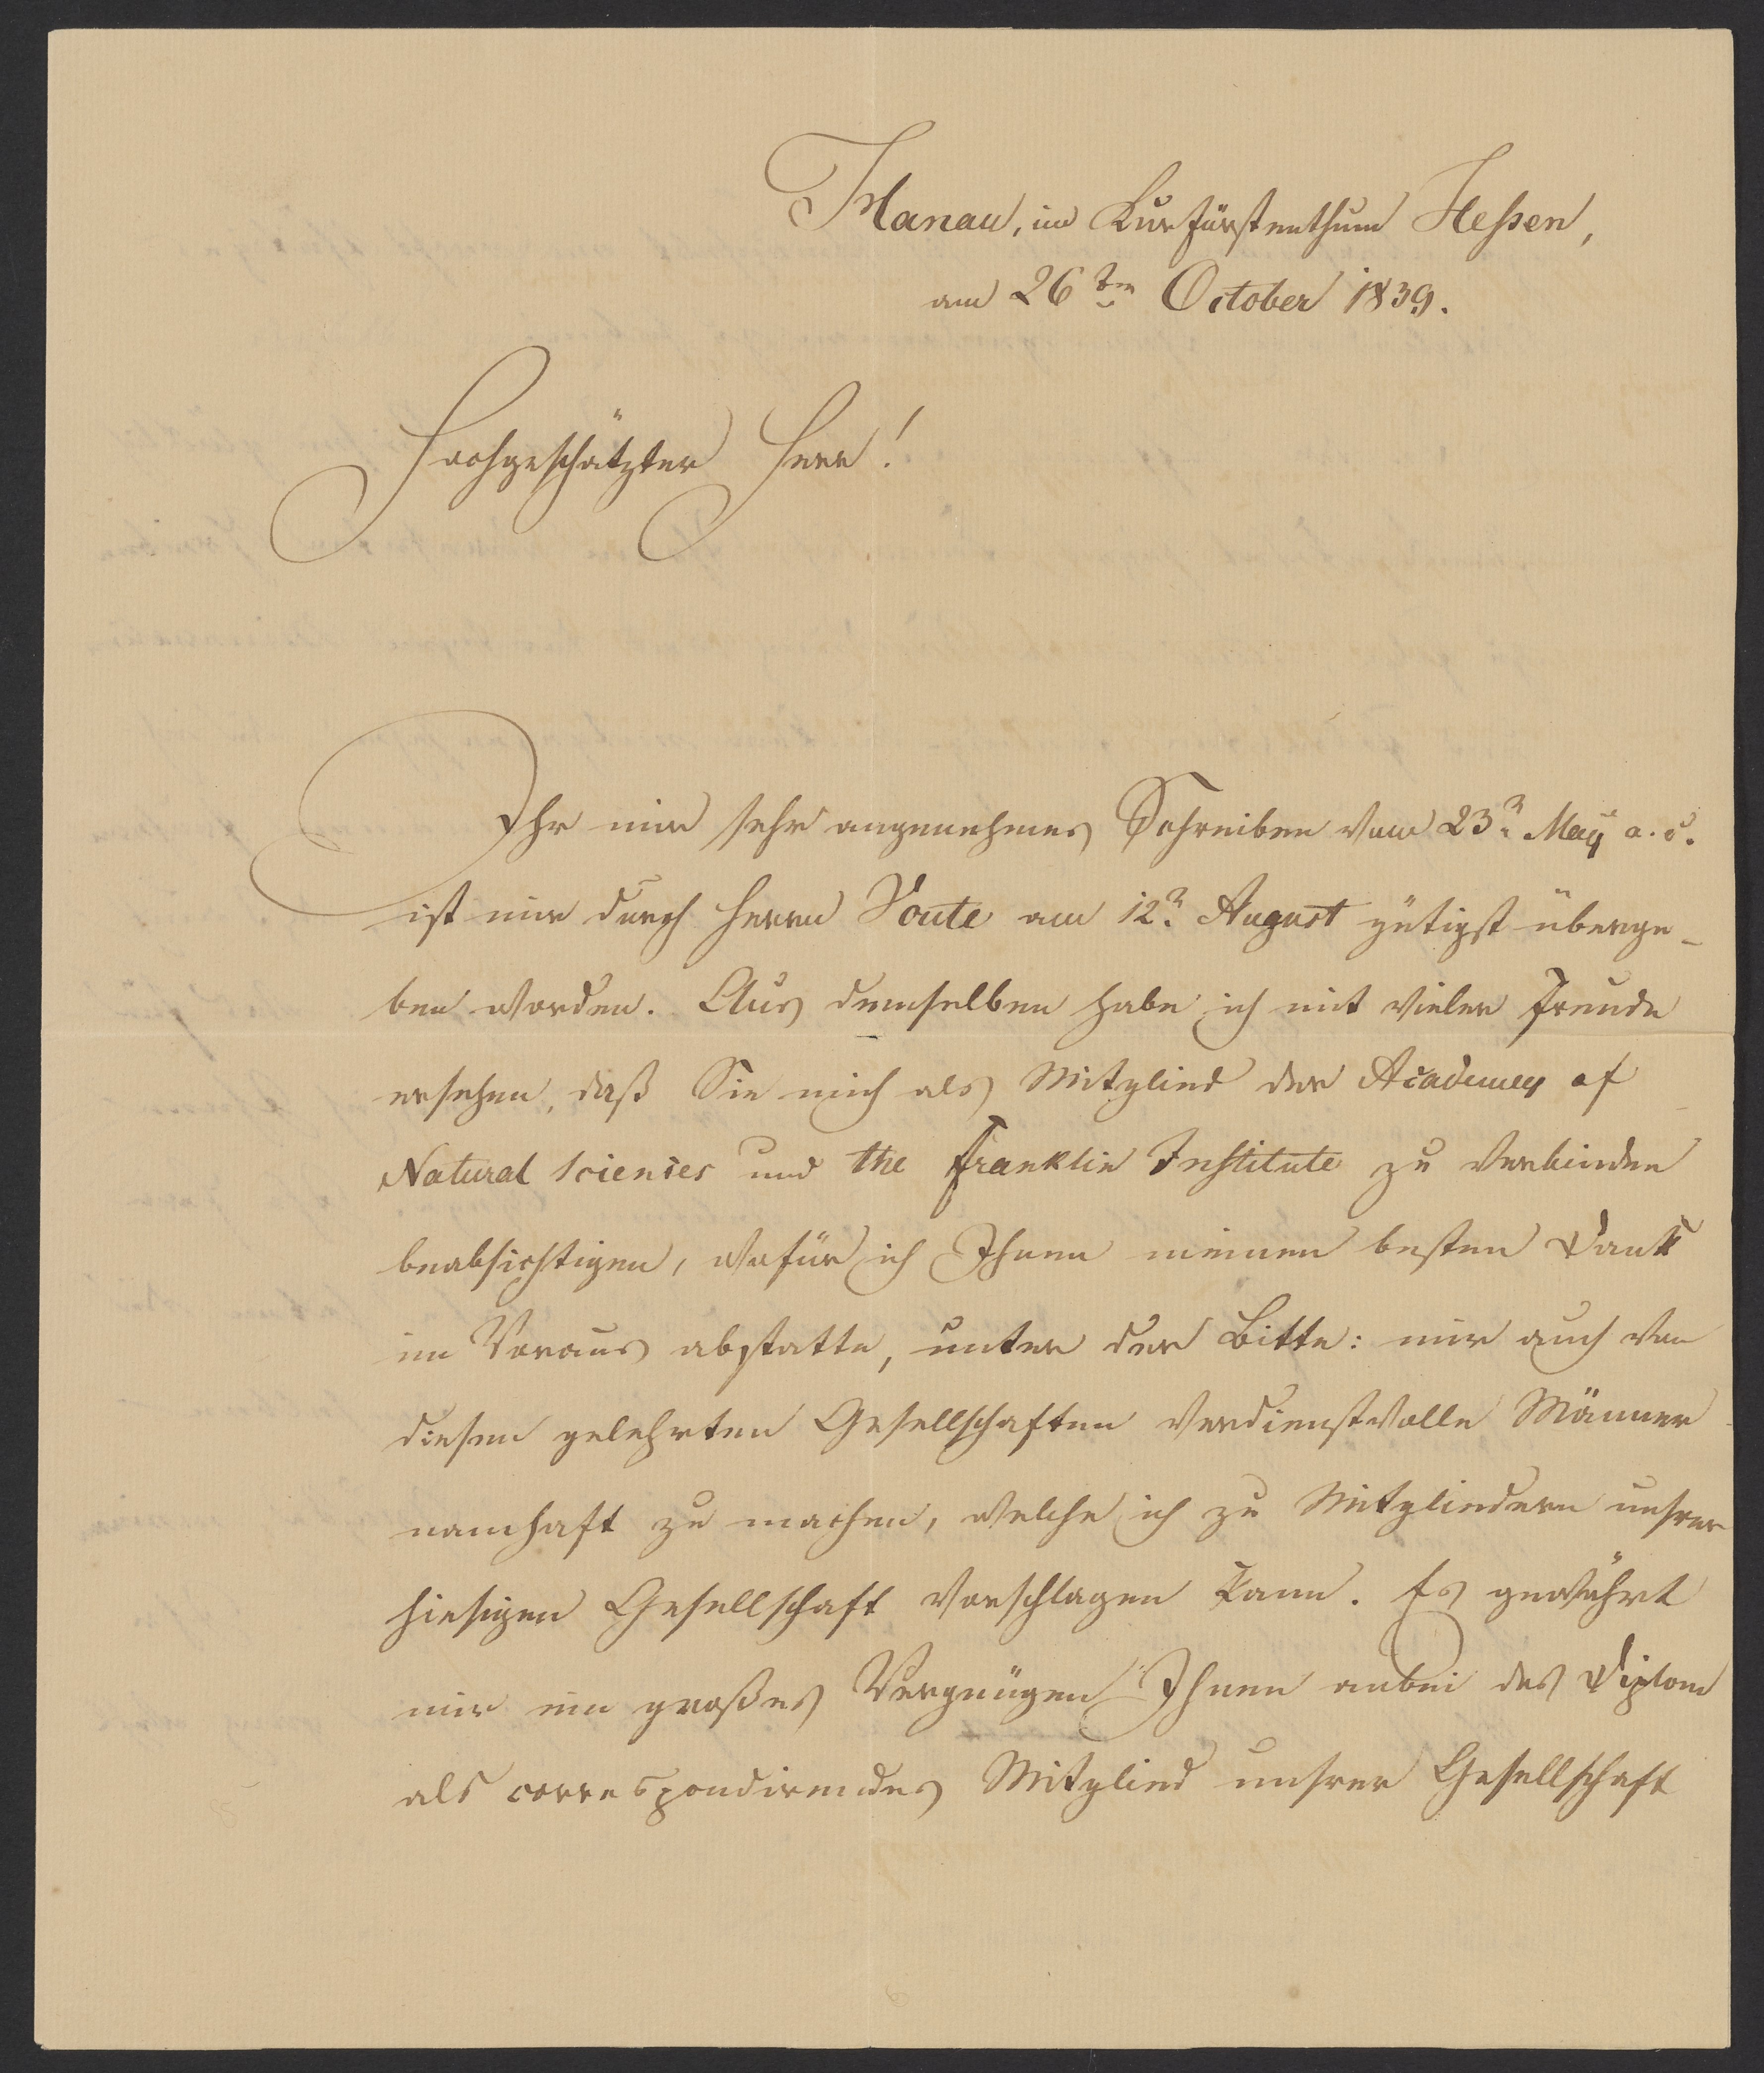 Hanau, im Kurfürstenthum Hessen,
am 26ten October 1839.
Hochgeschätzter Herr!
Ihr mir sehr angenehmes Schreiben vom 23n May a. c.
ist mir durch Herrn Voute am 12n August gütigst überge-
ben worden. Aus demselben habe ich mit vieler Freude
ersehen, daß Sie mich als Mitglied der Academy of
Natural Sciences und the Franklin Institute zu verbinden
beabsichtigen, wofür ich Ihnen meinen besten Dank
im Voraus abstatte, unter der Bitte: mir auch von
diesen gelehrten Gesellschaften verdienstvolle Männer
namhaft zu machen, welche ich zu Mitgliedern unsrer
hiesigen Gesellschaft vorschlagen kann. Es gewährt
mir ein großes Vergnügen Ihnen anbei das Diplom
als correspondirendes Mitglied unsrer Gesellschaft